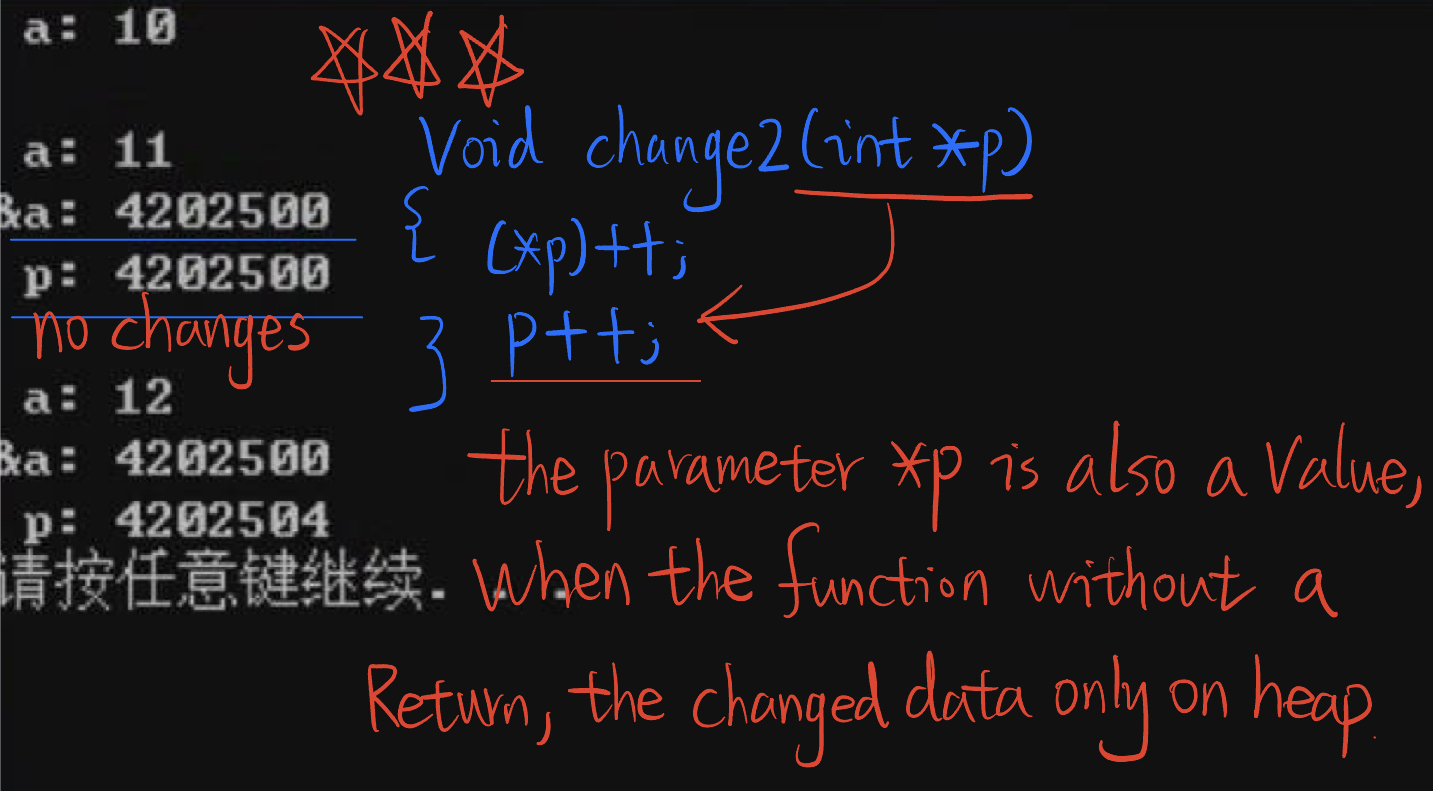 a: 10
a: 11
&a: 4202500
p: 4202500
no changes
a: 12
&a: 4202500
p: 4202504
请按任意键继续. . .
Void change2(int *p)
{ (*p)++;
} p++;
the parameter *p is also a Value,
when the function without a
Return, the changed data only on heap.